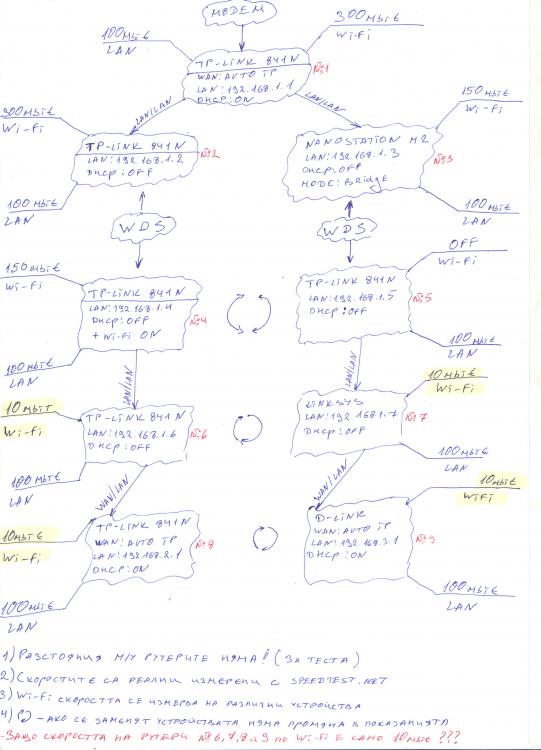 MODEM
100мbit
LAN
300мbit
Wi-Fi
TP-LINK 841N
WAN: AUTO IP
LAN: 192.168.1.1
DHCP: ON
№1
LAN/LAN
LAN/LAN
300мbit
Wi-Fi
TP-LINK 841N
LAN: 192.168.1.2
DHCP: OFF
№2
100мbit
LAN
150мbit
Wi-Fi
NANOSTATION M2
LAN: 192.168.1.3
DHCP: OFF
MODE: Bridge
№3
100мbit
LAN
WDS
WDS
150мbit
Wi-Fi
TP-LINK 841N
LAN: 192.168.1.4
DHCP: OFF
+ Wi-Fi ON
№4
100мbit
LAN
OFF
Wi-Fi
TP-LINK 841N
LAN: 192.168.1.5
DHCP: OFF
№5
100мbit
LAN
LAN/LAN
LAN/LAN
10мbit
Wi-Fi
TP-LINK 841N
LAN: 192.168.1.6
DHCP: OFF
№6
100мbit
LAN
10мbit
Wi-Fi
LINKSYS
LAN: 192.168.1.7
DHCP: OFF
№7
100мbit
LAN
WAN/LAN
WAN/LAN
10мbit
Wi-Fi
TP-LINK 841N
WAN: AUTO IP
LAN: 192.168.2.1
DHCP: ON
№8
100мbit
LAN
10мbit
WiFi
D-LINK
WAN: AUTO IP
LAN: 192.168.3.1
DHCP: ON
№9
100мbit
LAN
1) РАЗСТОЯНИЯ М/У РУТЕРИТЕ НЯМА! (ЗА ТЕСТА)
2) СКОРОСТИТЕ СА РЕАЛНИ ИЗМЕРЕНИ С SPEEDTEST.NET
3) Wi-Fi СКОРОСТТА СЕ ИЗМЕРВА НА РАЗЛИЧНИ УСТРОЙСТВА
4) - АКО СЕ ЗАМЕНЯТ УСТРОЙСТВАТА НЯМА ПРОМЯНА В ПОКАЗАНИЯТА
- ЗАЩО СКОРОСТТА НА РУТЕРИ №6,7,8 и 9 ПО Wi-Fi Е САМО 10мbit ???